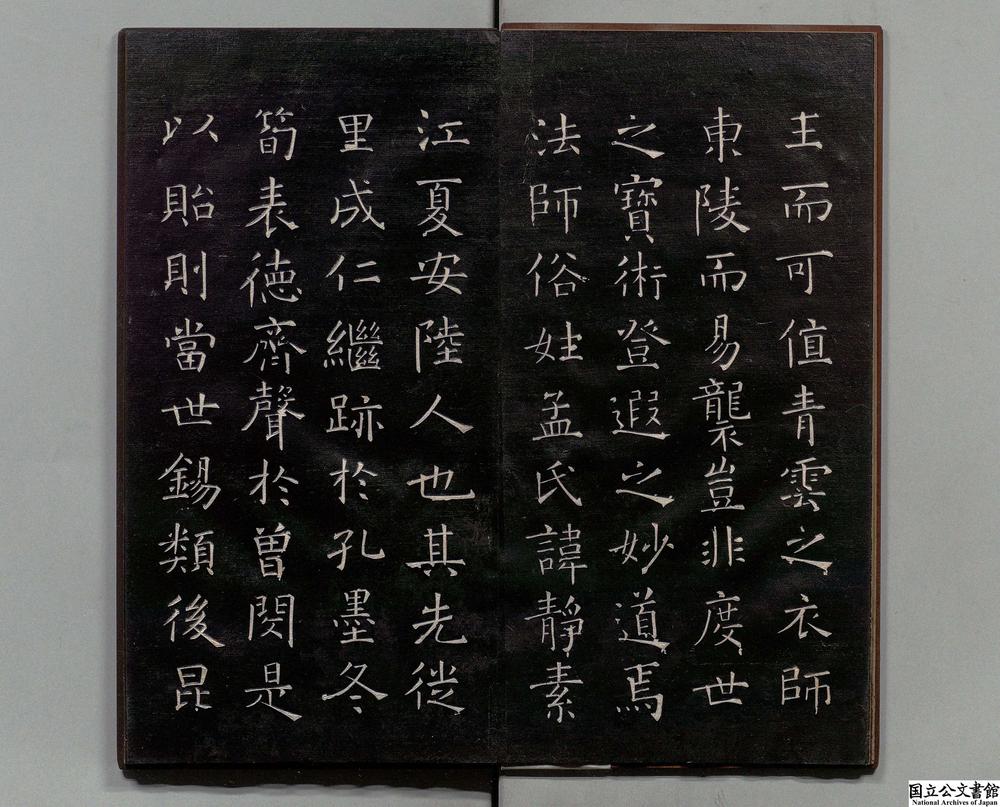 王而可值青雲之衣師
東陵而易襲豈非度世
之寶術登遐之妙道焉
法師俗姓孟氏諱靜素
江夏安陸人也其先徙
里成仁繼跡於孔墨冬
筍表德齊聲於曾閔是
以貽則當世錫類後昆
国立公文書館
National Archives of Japan